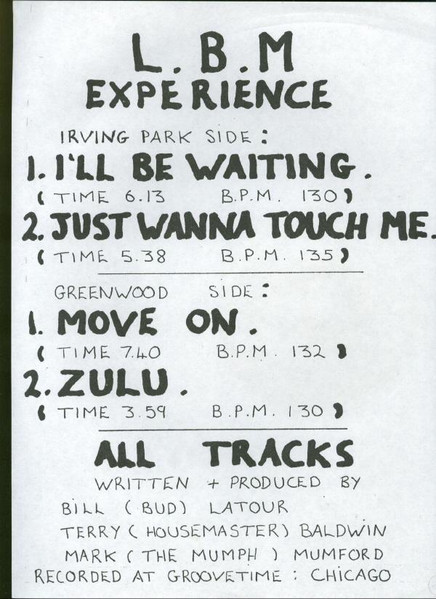 L.B.M
EXPERIENCE
IRVING PARK SIDE:
1. I'LL BE WAITING.
( TIME 6.13 B.P.M. 130 )
2. JUST WANNA TOUCH ME.
( TIME 5.38 B.P.M. 135 )
GREENWOOD SIDE:
1. MOVE ON.
( TIME 7.40 B.P.M. 132 )
2. ZULU.
( TIME 3.59 B.P.M. 130 )
ALL TRACKS
WRITTEN + PRODUCED BY
BILL ( BUD ) LATOUR
TERRY ( HOUSEMASTER ) BALDWIN
MARK ( THE MUMPH ) MUMFORD
RECORDED AT GROOVETIME : CHICAGO